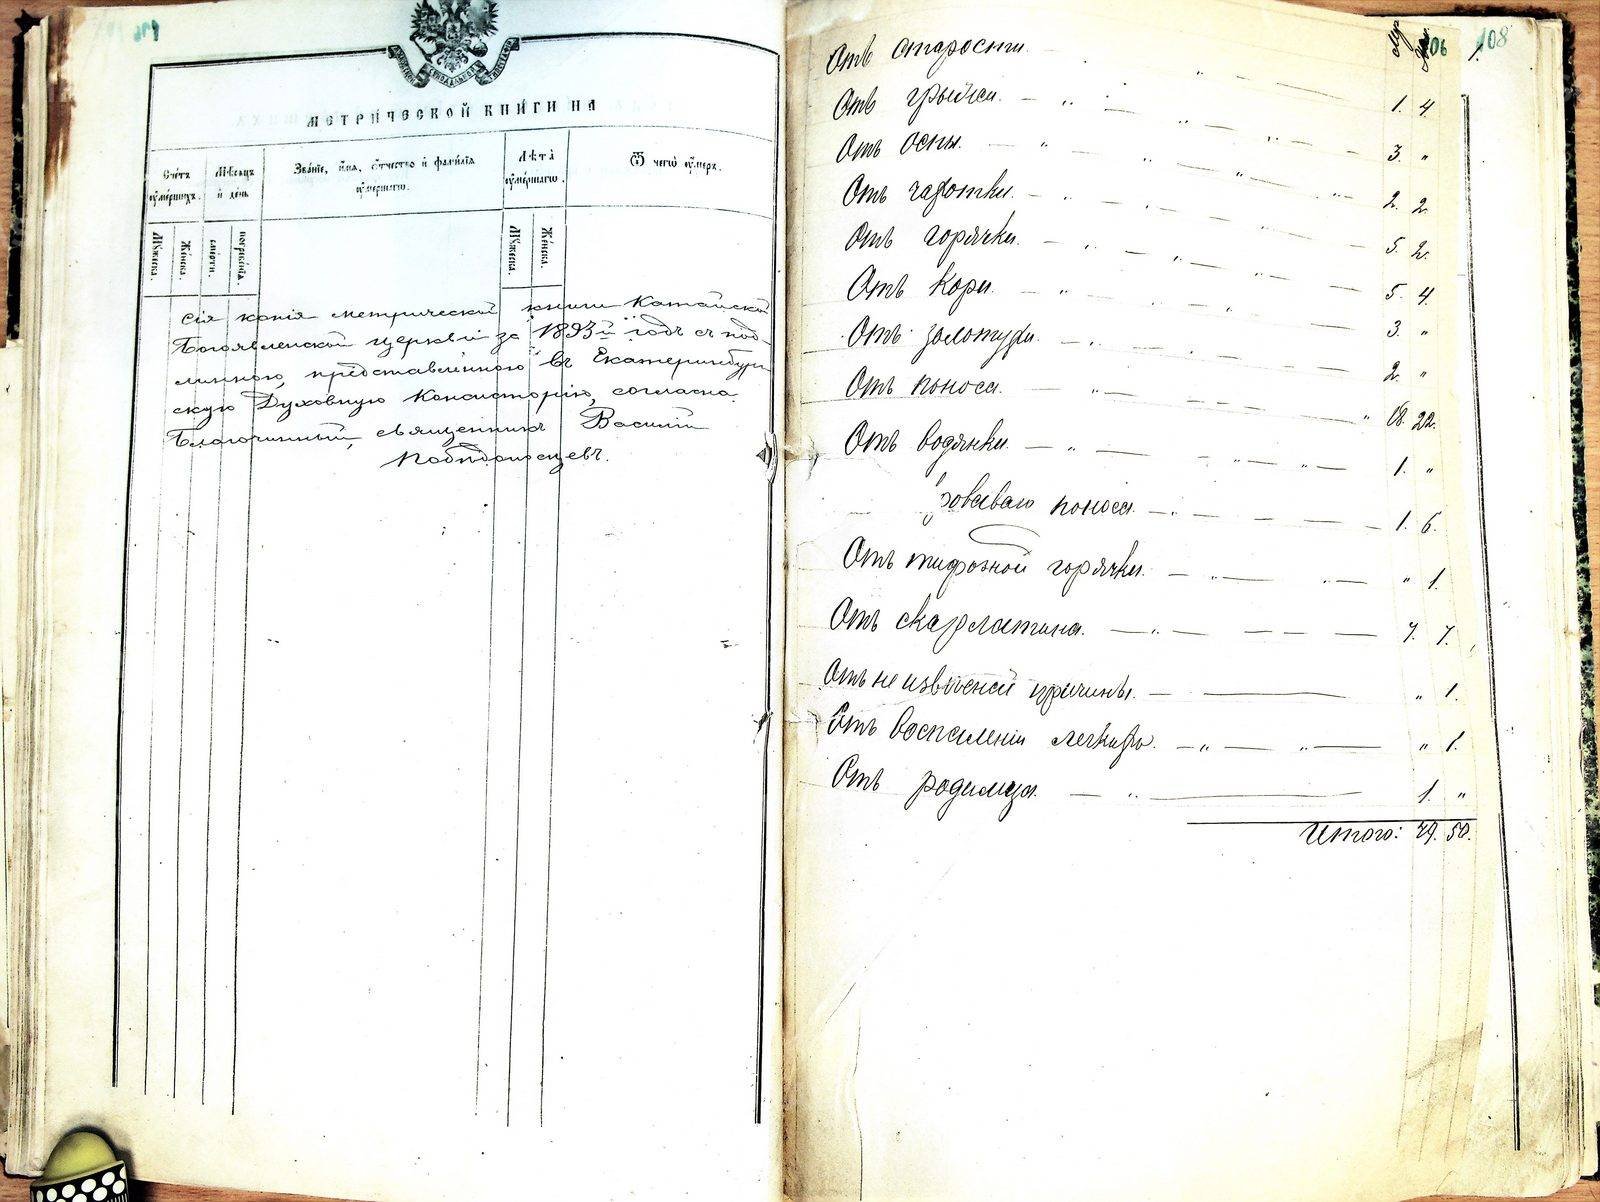 МЕТРИЧЕСКОЙ КНИГИ НА
Счетъ ᲂумершихъ.
Мѣсяцъ и день
Званіе, имя, отчество и фамилія ᲂумершагω.
Лѣта ᲂумершагω.
Ѿ чегω ᲂумеръ.
Мужеска.
Женска.
смерти.
погребенія.
Мужеска.
Женска.
Сія копія метрической книги Катайской
Богоявленской церкви за 1893й годъ съ под-
линною, представленною въ Екатеринбург-
скую Духовную Консисторію, согласна.
Благочинный, священникъ Василій
Побѣдоносцевъ.
106 108
Отъ старости.
Отъ грыжи. 1. 4.
Отъ оспы. 3. "
Отъ чахотки. 2. 2.
Отъ горячки. 5. 2.
Отъ кори. 5. 4
Отъ золотухи. 3. "
Отъ поноса. 2. "
18. 22.
Отъ водянки. 1. "
поноса. 1. 6.
Отъ тифозной горячки. " 1.
Отъ скарлатина. 7. 7.
Отъ не извѣсной причины. " 1.
Отъ воспаленія легкихъ. " 1.
Отъ родимца. 1. "
Итого: 49. 50.